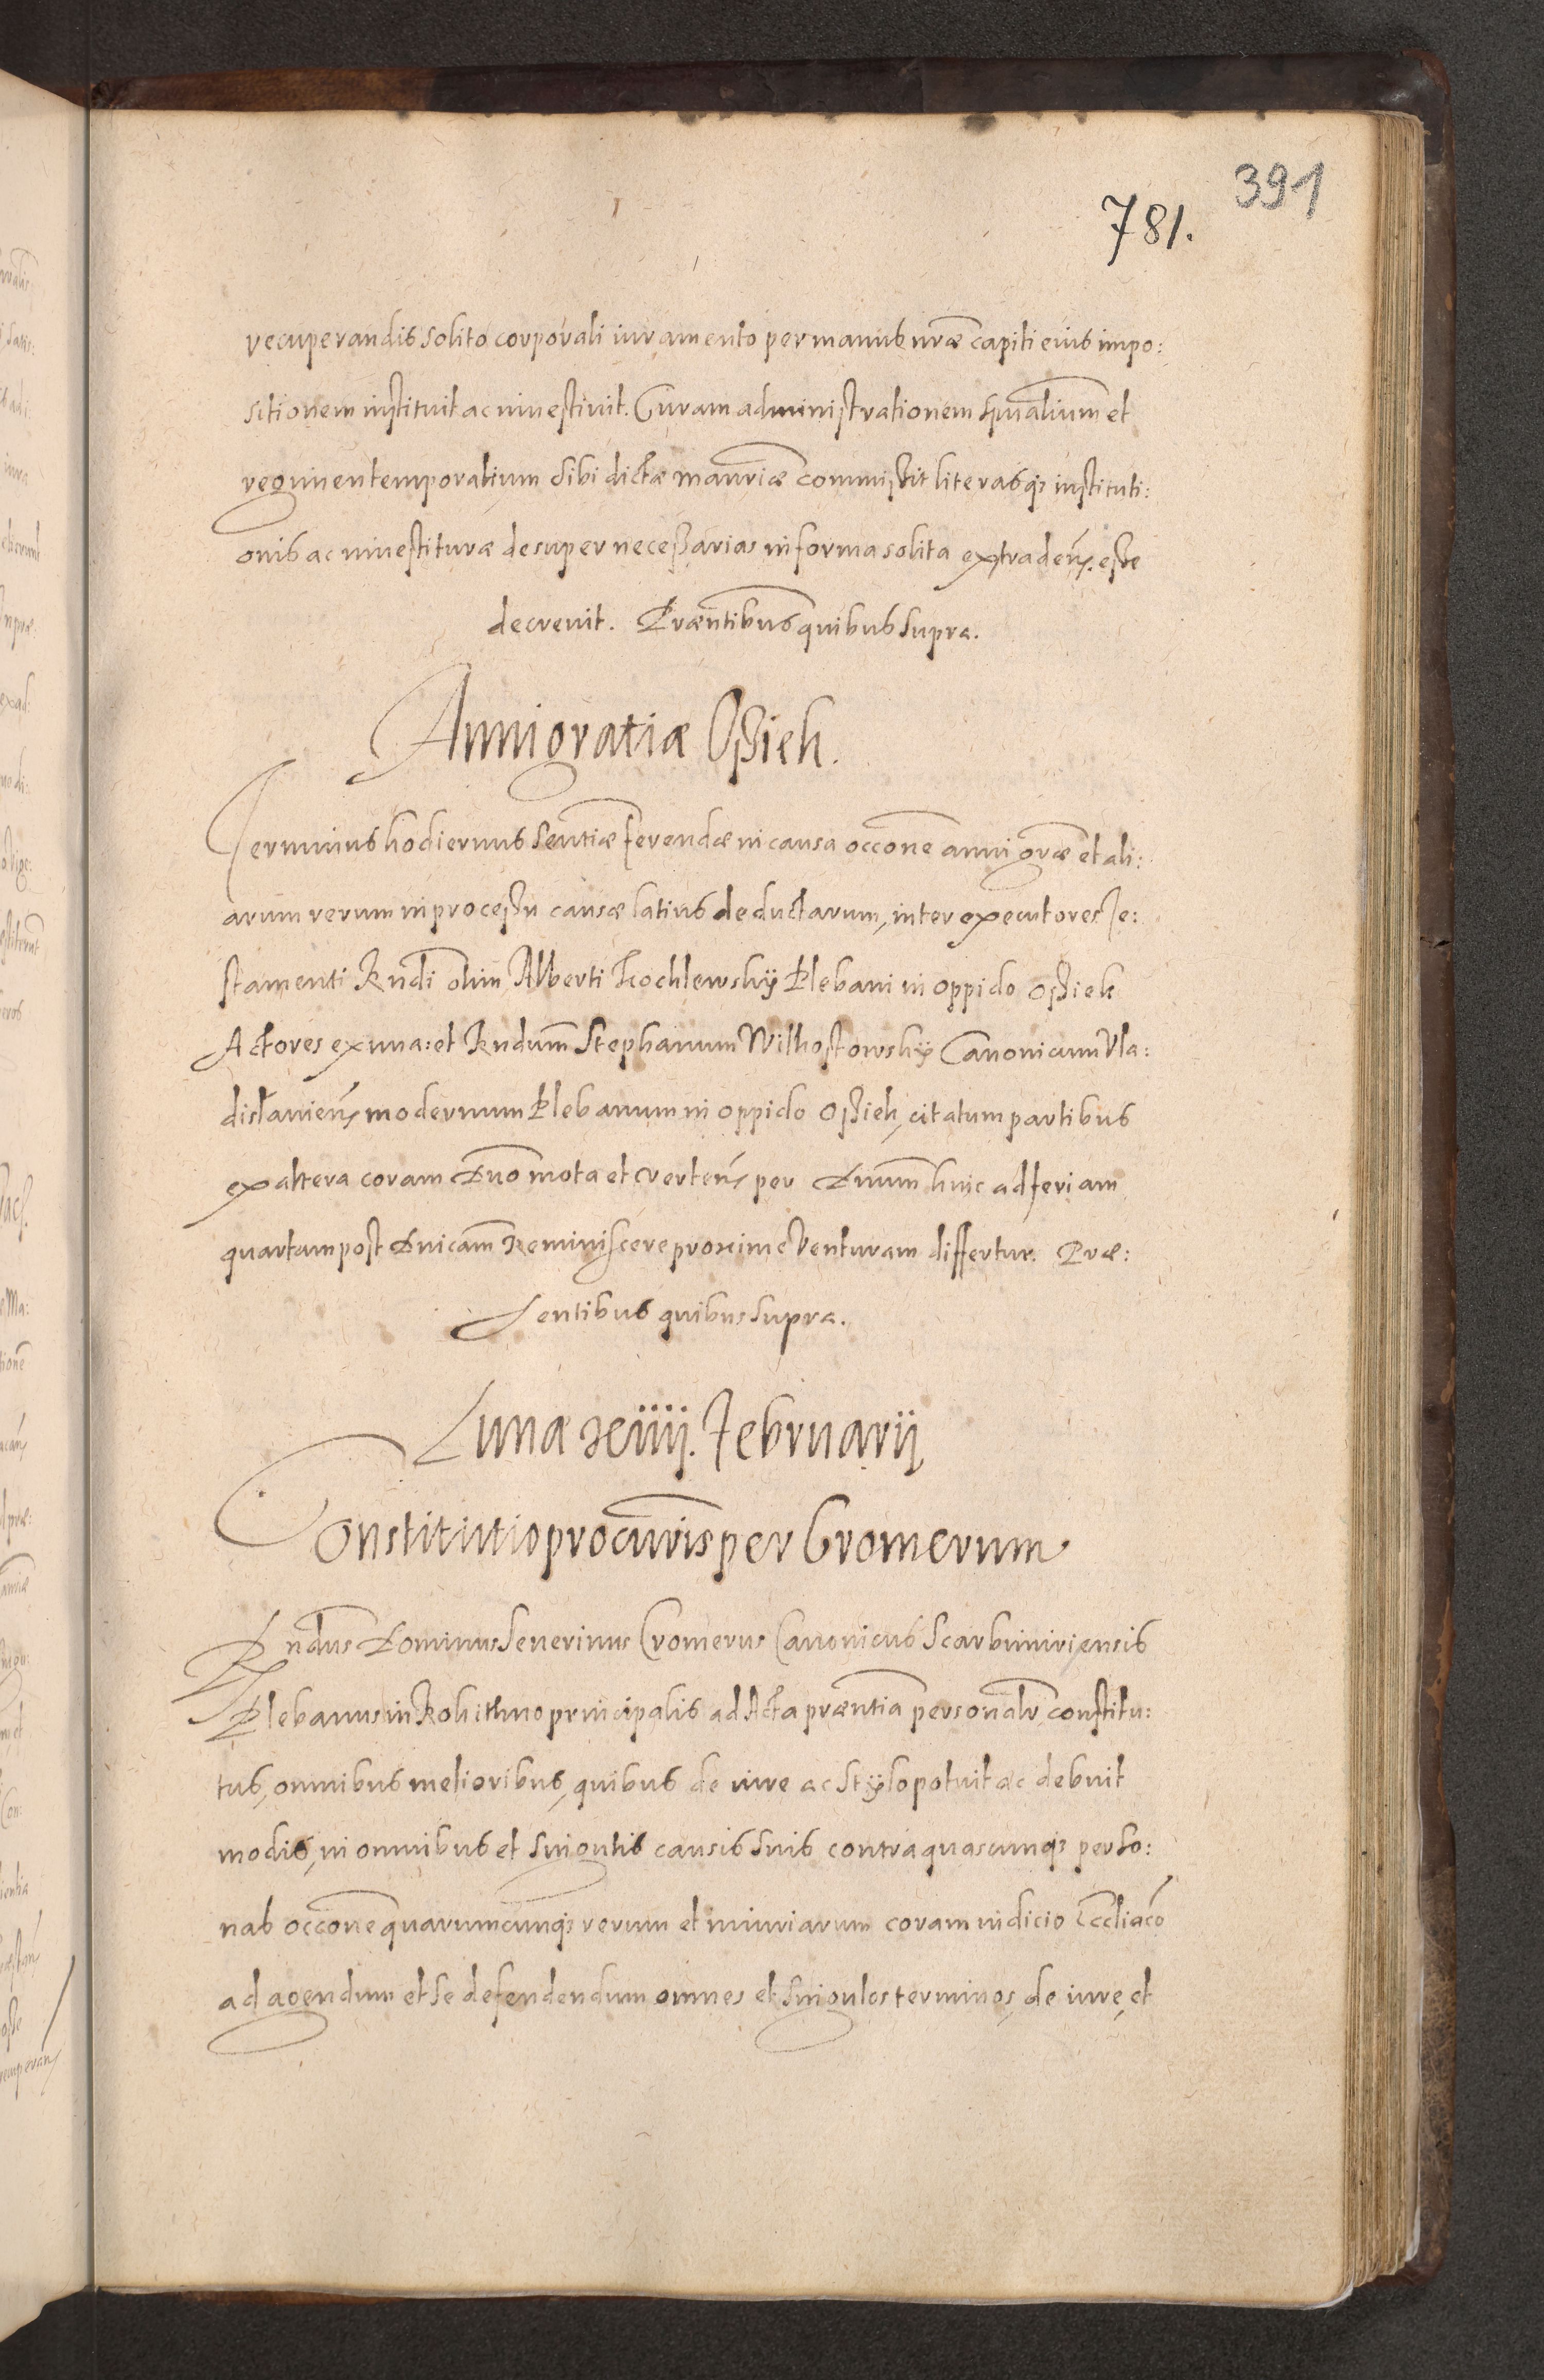 391
781.
recuperandis solito corporali iuramento per manus nræ capiti eius impo:
sitionem instituit ac inuestiuit. Curam administrationem spualium et
regimen temporalium sibi dictæ mansriæ commissit literasq; instituti:
onis ac inuestituræ desuper necessarias in forma solita extraden̄. esse
decreuit. Præntibus quibus supra.
Anni gratiæ Ossiek.
Terminus hodiernus sentiæ ferendæ in causa occone anni græ et ali:
arum rerum in processu causæ latius deductarum, inter executores Te:
stamenti Rndi olim Alberti Kochlewskÿ Plebani in oppido Ossiek
Actores ex una: et Rndum Stephanum Wilkostowskÿ Canonicum Vla:
dislauien̄ modernum Plebanum in oppido Ossiek, citatum partibus
ex altera coram Dno mota et verten̄ per Dnum huic ad feriam
quartam post Dnicam Reminiscere proxime venturam differtur. Præ:
sentibus quibus supra.
Lunæ xiiij. Februarij
Constitutio procuris per Cromerum
Rndus Dominus Seuerinus Cromerus Canonicus Scarbimiriensis
Plebanus in Rokithno principalis ad Acta præntia personalr constitu:
tus, omnibus melioribus, quibus de iure ac stÿlo potuit ac debuit
modis, in omnibus et singulis causis suis contra quascunq; perso:
nas occone quarumcunq; rerum et iniuriarum coram iudicio Eccliaco
ad agendum et se defendendum omnes et singulos terminos, de iure, et